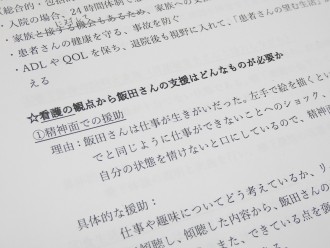 (総合的・包括
・入院の場合、24時間体制で
・家族と接する機会もあるため、家族への
・患者さんの健康を守る、事故を防ぐ
・ADLやQOLを保ち、退院後も視野に入れて、「患者さんの望む生活」
える
☆看護の観点から飯田さんの支援はどんなものが必要か
①精神面での援助
理由:飯田さんは仕事が生きがいだった。左手で絵を描くとい
でと同じように仕事ができないことへのショック、
自分の状態を情けないと口にしているので、精神面
具体的な援助:
仕事や趣味についてどう考えているか、リ
傾聴し、傾聴した内容から、飯田さんの
また、できている点を褒